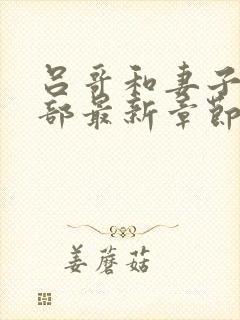 吕哥和妻子
部最新章节
姜蘑菇